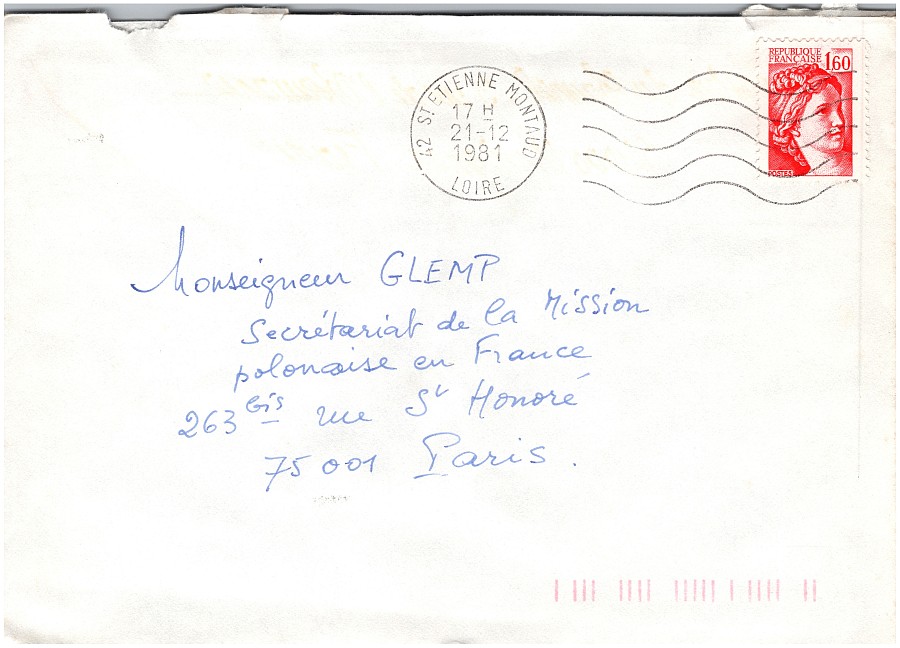 RÉPUBLIQUE
FRANÇAISE 1,60
POSTES
42 ST. ETIENNE MONTAUD
17 H
21-12
1981
LOIRE
Monseigneur GLEMP
Secrétariat de la Mission
polonaise en France
263 bis rue St Honoré
75001 Paris.